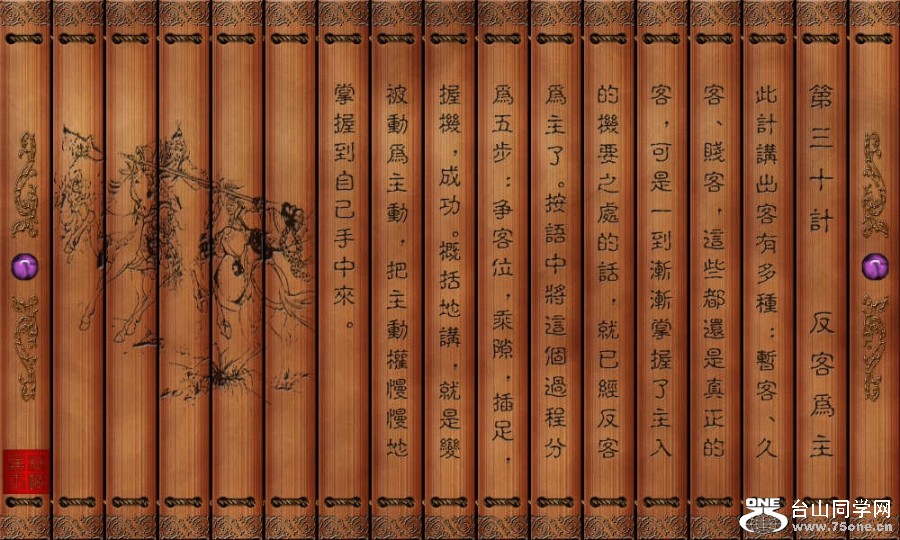 第三十計 反客爲主
此計講出客有多種：暫客、久
客、賤客，這些都還是真正的
客，可是一到漸漸掌握了主入
的機要之處的話，就已經反客
爲主了。按語中將這個過程分
爲五步：争客位，乘隙，插足，
握機，成功。概括地講，就是變
被動爲主動，把主動權慢慢地
掌握到自己手中來。
ONE
台山同学网
www.75one.cn